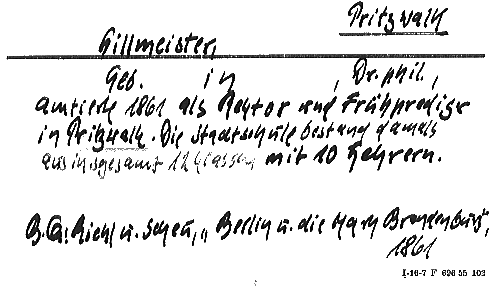 Pritzwalk
Gillmeister,
Geb. in , Dr. phil.,
amtierte 1861 als Rektor und Frühprediger
in Pritzwalk. Die Stadtschule bestand damals
aus insgesamt 12 Klassen mit 10 Lehrern.
B. Q: Riehl u. Scheu, „Berlin u. die Mark Brandenburg",
1861
I-16-7 F 626 55 102